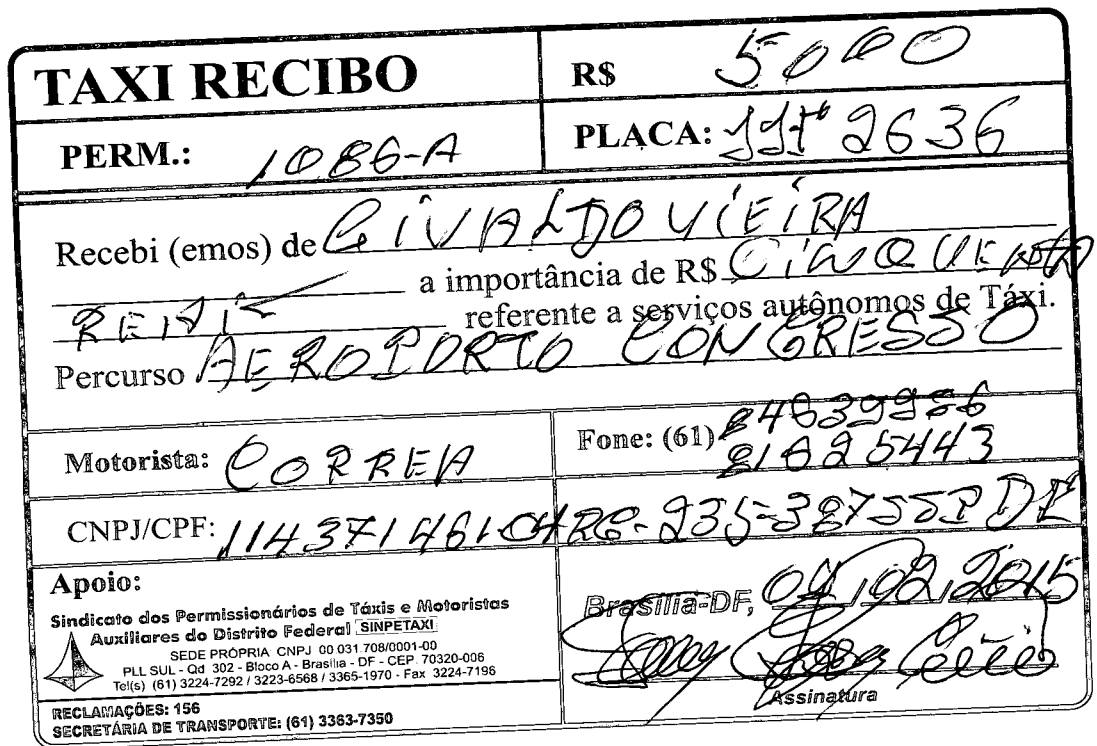 TAXI RECIBO
R$ 5000
PERM.: 1086-A
PLACA: JJT 2636
Recebi (emos) de GIVALDO VIEIRA
a importância de R$ CINQUENTA
REAIS referente a serviços autônomos de Táxi.
Percurso AEROPORTO CONGRESSO
Motorista: CORREA
Fone: (61) 84639986
81625443
CNPJ/CPF: 114371461-04 RG-235-387SSPDF
Apoio:
Sindicato dos Permissionários de Táxis e Motoristas
Auxiliares do Distrito Federal SINPETAXI
SEDE PRÓPRIA CNPJ 00 031.708/0001-00
PLL SUL - Qd 302 - Bloco A - Brasília - DF - CEP. 70320-006
Tel(s) (61) 3224-7292 / 3223-6568 / 3365-1970 - Fax 3224-7196
RECLAMAÇÕES: 156
SECRETÁRIA DE TRANSPORTE: (61) 3363-7350
Brasília-DF, 04/02/2015
Assinatura